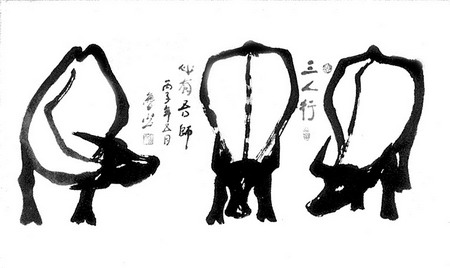 三人行
必有吾師
丙子年五月